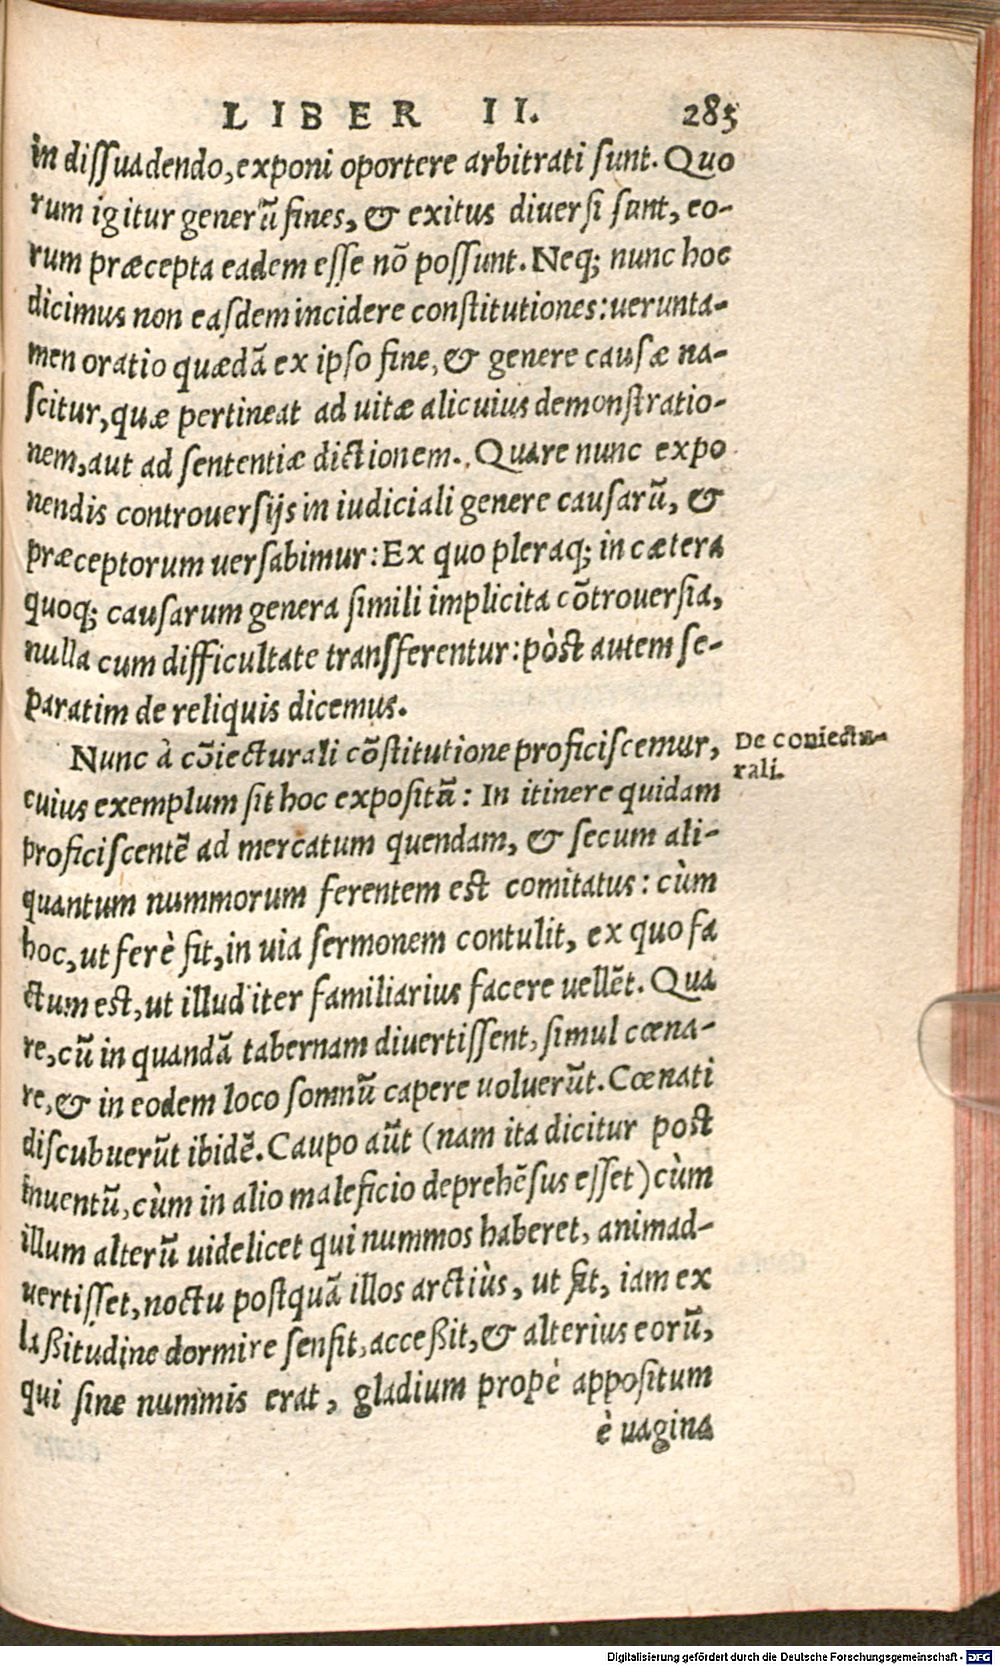 LIBER II. 285
in dissuadendo, exponi oportere arbitrati sunt. Quo
rum igitur generū fines, & exitus diuersi sunt, eo-
rum præcepta eadem esse nō possunt. Neq; nunc hoc
dicimus non easdem incidere constitutiones: uerunta-
men oratio quædā ex ipso fine, & genere causæ na-
scitur, quæ pertineat ad uitæ alicuius demonstratio-
nem, aut ad sententiæ dictionem. Quare nunc expo
nendis controuersijs in iudiciali genere causarū, &
præceptorum uersabimur: Ex quo pleraq; in cætera
quoq; causarum genera simili implicita cōtrouersia,
nulla cum difficultate transferentur: pòst autem se-
paratim de reliquis dicemus.
Nunc à cōiecturali cōstitutione proficiscemur,
De coniectu-
rali.
cuius exemplum sit hoc expositū: In itinere quidam
proficiscentē ad mercatum quendam, & secum ali-
quantum nummorum ferentem est comitatus: cùm
hoc, ut ferè fit, in uia sermonem contulit, ex quo fa
ctum est, ut illud iter familiarius facere uellēt. Qua
re, cū in quandā tabernam diuertissent, simul cœna-
re, & in eodem loco somnū capere uoluerūt. Cœnati
discubuerūt ibidē. Caupo aūt (nam ita dicitur post
inuentū, cùm in alio maleficio deprehēsus esset) cùm
illum alterū uidelicet qui nummos haberet, animad-
uertisset, noctu postquā illos arctiùs, ut fit, iam ex
laßitudine dormire sensit, acceßit, & alterius eorū,
qui sine nummis erat, gladium propè appositum
è uagina
Digitalisierung gefördert durch die Deutsche Forschungsgemeinschaft - DFG